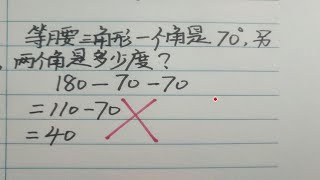 等腰三角形一个角是70°,另
两个角是多少度?
180-70-70
=110-70
=40